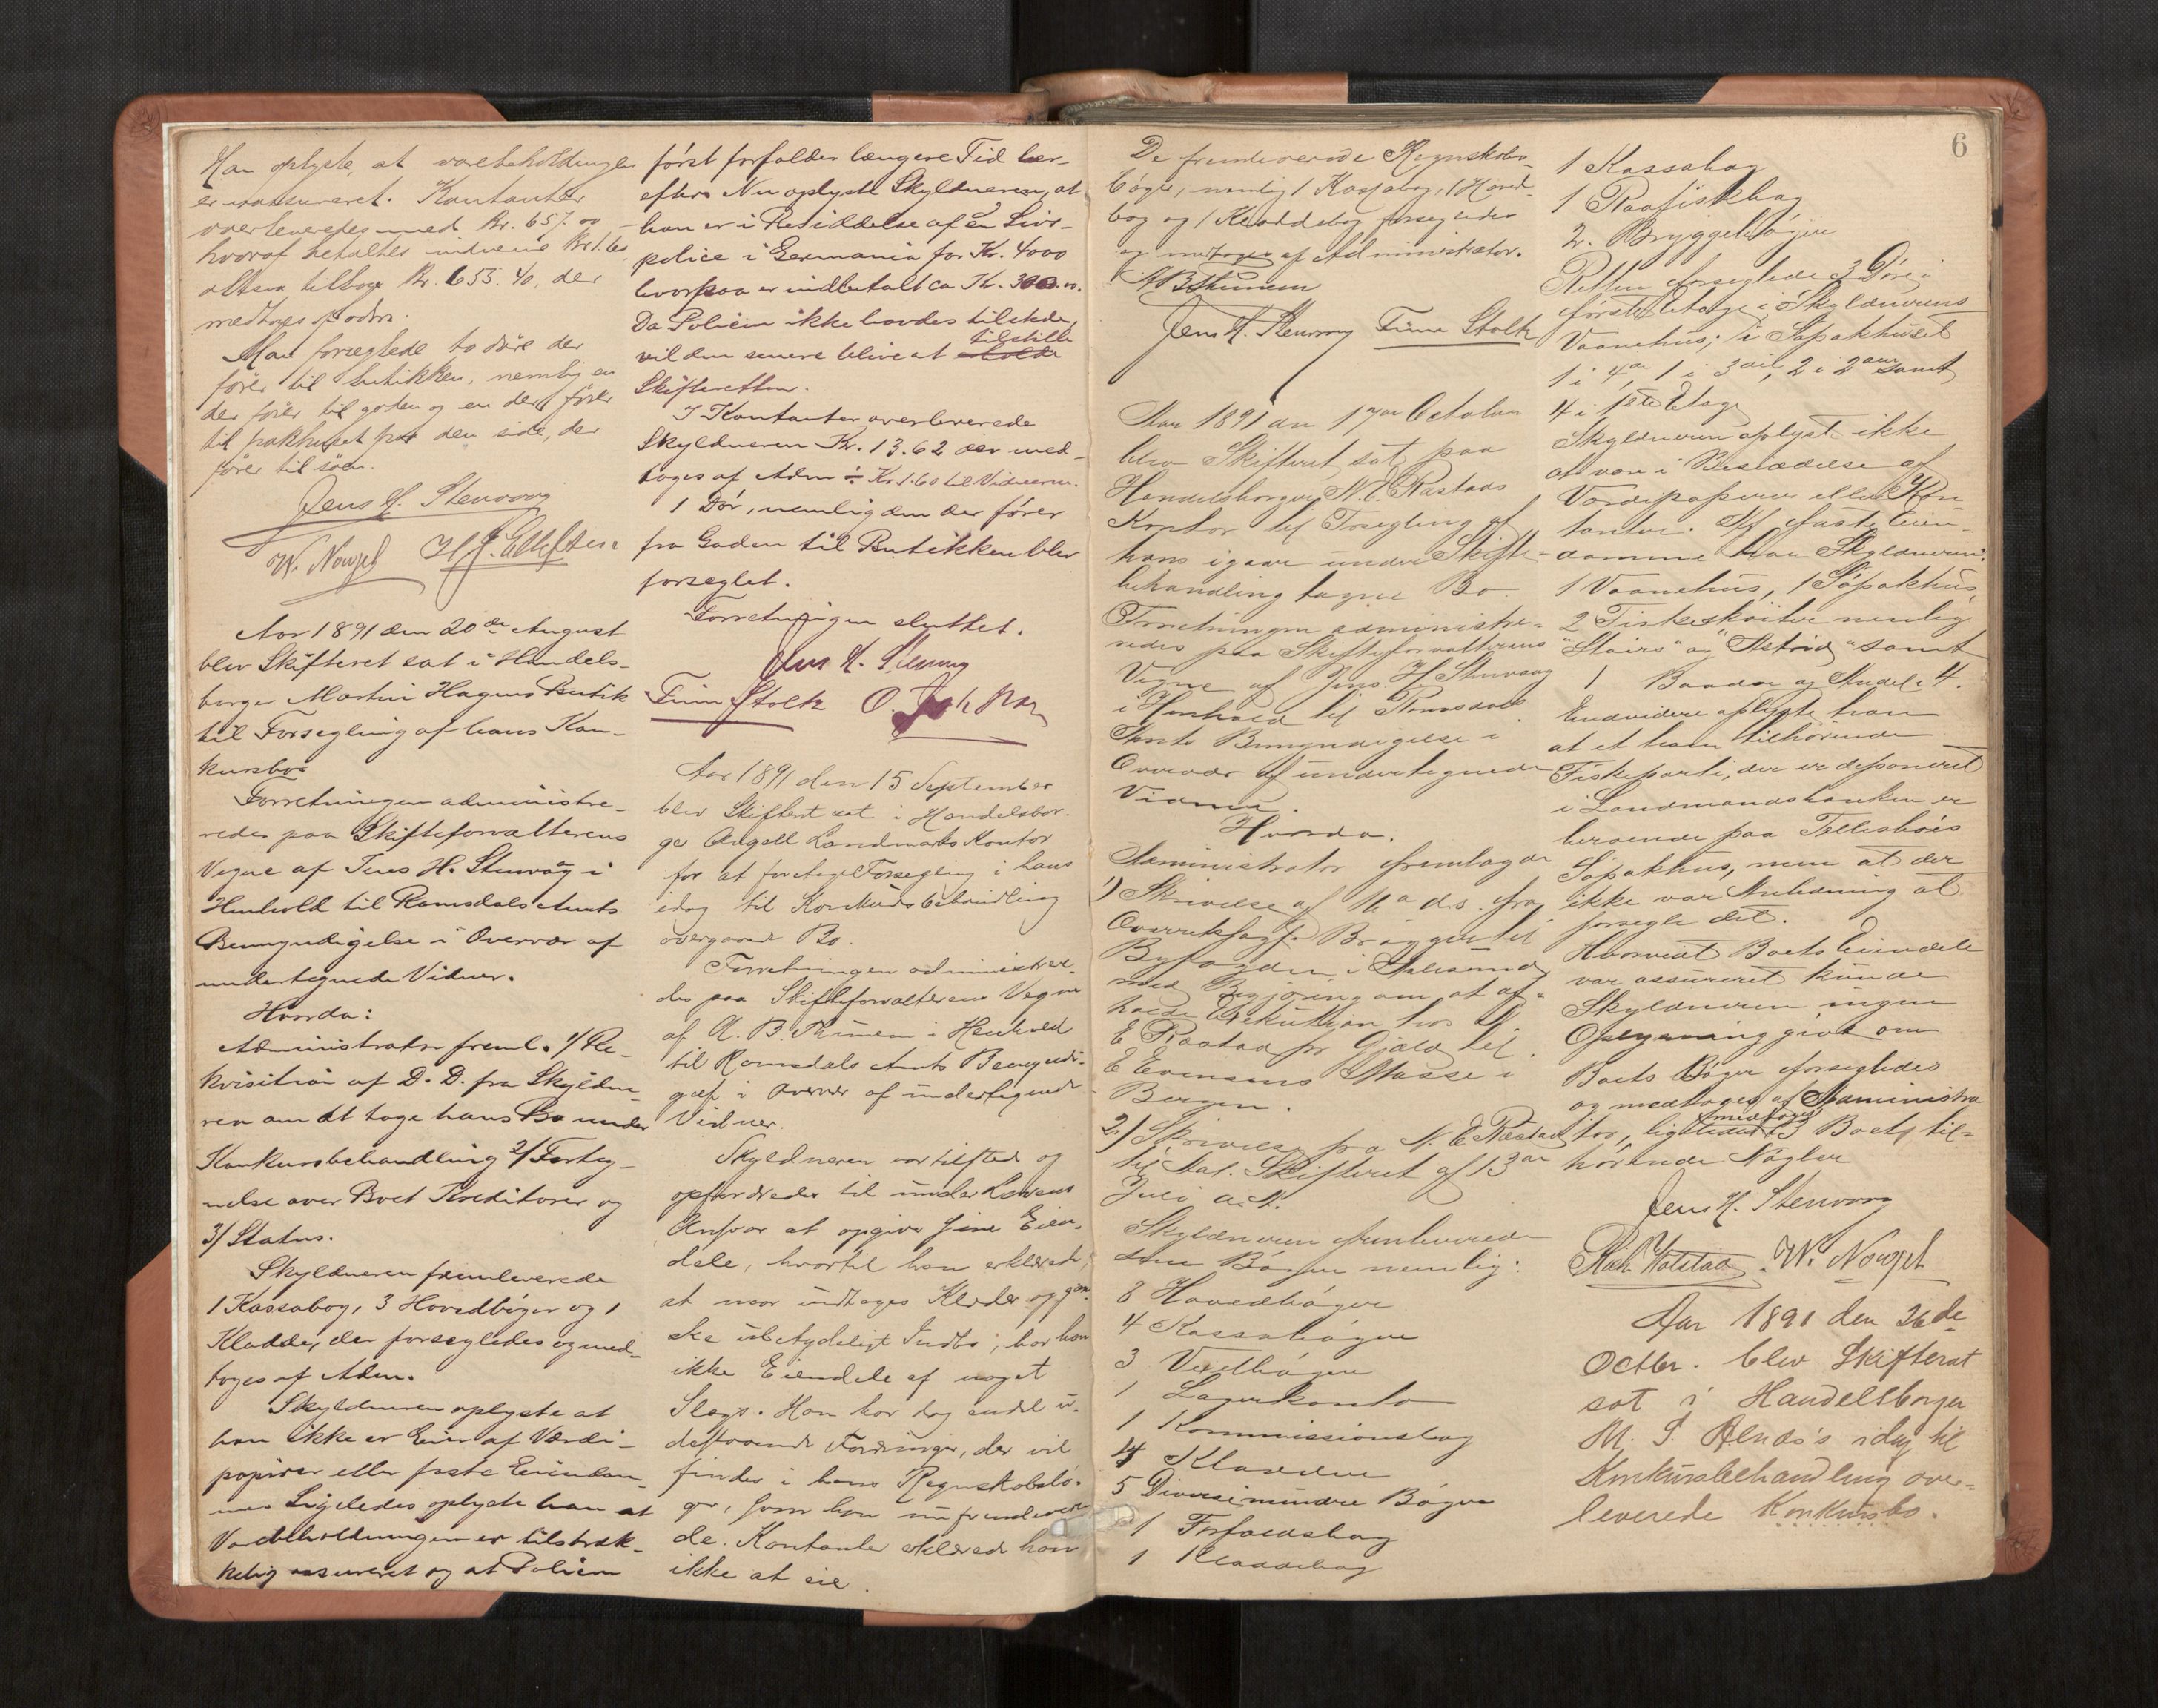 Han oplyste, at varebeholdningen
er assureret. Kontanter
overleveredes med Kr. 657.00
hvoraf betaltes vidnerne Kr 1.60
altsaa tilbage Kr. 655.40, der
medtages af adm.
Man forseglede to døre der
fører til butikken, nemlig en
der fører til gaden og en der fører
til pakhuset paa den side, der
fører til søen.
Jens H. Stenvaag
W. Novget H J. Ellefsen
Aar 1891 den 20de August
blev Skifteret sat i Handels-
borger Martin Hagens Butik
til Forsegling af hans Kon-
kursbo.
Forretningen administre-
redes paa Skifteforvalterens
Vegne af Jens H. Stenvåg i
Henhold til Romsdals Amts
Bemyndigelse i Overvær af
undertegnede Vidner.
Hvorda:
Administrator freml. 1/ Re-
kvisition af D. D. fra Skyldne-
ren om at tage hans Bo under
Konkursbehandling 2/ Forteg-
nelse over Boet Kreditorer og
3/ Status.
Skyldneren fremleverede
1 Kassabog, 3 Hovedbøger og 1
Kladde, der forsegledes og med-
toges af Adm.
Skyldneren oplyste at
han ikke er Eier af Værdi-
papirer eller faste Eiendom-
me Ligeledes oplyste han at
Varebeholdningen er tilstræk-
kelig assureret og at Policen
først forfalder længere Tid her-
efter. Nu oplyste Skyldneren, at
han er i Besiddelse af en Livs-
police i Germania for Kr. 4000
hvorpaa er indbetalt ca Kr. 300.00.
Da Policen ikke havdes tilstede,
tilstille
vil den senere blive at
Skifteretten.
I Kontanter overleverede
Skyldneren Kr. 13.62 der med-
toges af Adm ÷ Kr. 1.60 til Vidnerne.
1 Dør, nemlig den der fører
fra Gaden til Butikken blev
forseglet.
Forretningen sluttet.
Jens H. Stenvaag
Finn Stolk O.
Aar 1891 den 15 September
blev Skifteret sat i Handelsbor-
ger Angell Landmarks Kontor
for at foretage Forsegling i hans
idag til Konkursbehandling
overgaaede Bo.
Forretningen administrere-
des paa Skifteforvalterens Vegne
af A. B. Thunem i Henhold
til Romsdals Amts Bemyndi-
gelse i Overvær af undertegnede
Vidner.
Skyldneren var tilstede og
opfordredes til under Lovens
Ansvar at opgive sine Eien-
dele, hvortil han erklærede,
at naar undtages Klæder og gan-
ske ubetydeligt Indbo, har han
ikke Eiendele af noget
Slags. Han har dog endel u-
destaaende Fordringer, der vil
findes i hans Regnskabsbø-
ger, som han nu fremlevere-
de. Kontanter erklærede han
ikke at eie.
6
De fremleverede Regnskabs-
bøger, nemlig 1 Kassabog, 1 Hoved-
bog og 1 Kladdebog forsegledes
og medtoges af Administrator.
A B Thunem
Jens H. Stenvaag Finn Stolk
Aar 1891 den 17de October
blev Skifteret sat paa
Handelsborger N. E. Rastads
Kontor til Forsegling af
hans igaar under Skifte-
behandling tagne Bo.
Forretningen administre-
redes paa Skifteforvalterens
Vegne af Jens H Stenvaag
i Henhold til Romsdals
Amts Bemyndigelse i
Overvær af undertegnede
Vidner.
Hvorda.
Administrator fremlagde
1) Skrivelse af 16de ds. fra
Overretssagf. Brügger til
Byfogden i Aalesund
med Begjæring om at af-
holde Exekution hos N.
E Rastad for Gjæld til
E Evensens Masse i
Bergen.
2.) Skrivelse fra N. E Rastad
til Aal. Skifteret af 13de
Juli a. A.
Skyldneren fremleverede
sine Bøger nemlig:
8 Hovedbøger
4 Kassabøger
3 Vexelbøger
1 Lagerkonto
1 Kommissionsbog
4 Kladder
5 Diverse mindre Bøger
1 Forfaldsbog
1 Kladdebog
1 Kassabog
1 Raafiskbog
2. Bryggebøger
Retten forseglede 3 Døre i
første Etage i Skyldnerens
Vaanehus; i Søpakhuset
1 i 4de, 1 i 3die, 2 i 2den samt
4 i 1ste Etage
Skyldneren oplyste ikke
at være i Besiddelse af
Værdipapirer eller Kon
tanter. Af faste Eien-
domme har Skyldneren:
1 Vaanehus, 1 Søpakhus,
2 Fiskeskøiter nemlig
"Stairs" og "Astrid" samt
1 Baade og Andel i 4.
Endvidere oplyste han
at et ham tilhørende
Fiskeparti, der er deponeret
i Landmandsbanken er
beroende paa Tellesbøes
Søpakhus, men at der
ikke var Anledning at
forsegle det.
Hvorvidt Boets Eiendele
var assureret kunde
Skyldneren ingen
Oplysning give om
Boets Bøger forsegledes
og medtoges af Administra
medtoges
tor, ligeledes 13 Boets til-
hørende Nøgler
Jens H. Stenvaag
W. Novget
Aar 1891 den 26de
Octbr. blev Skifteret
sat i Handelsborger
M. S. idag til
Konkursbehandling over-
leverede Konkursbo.